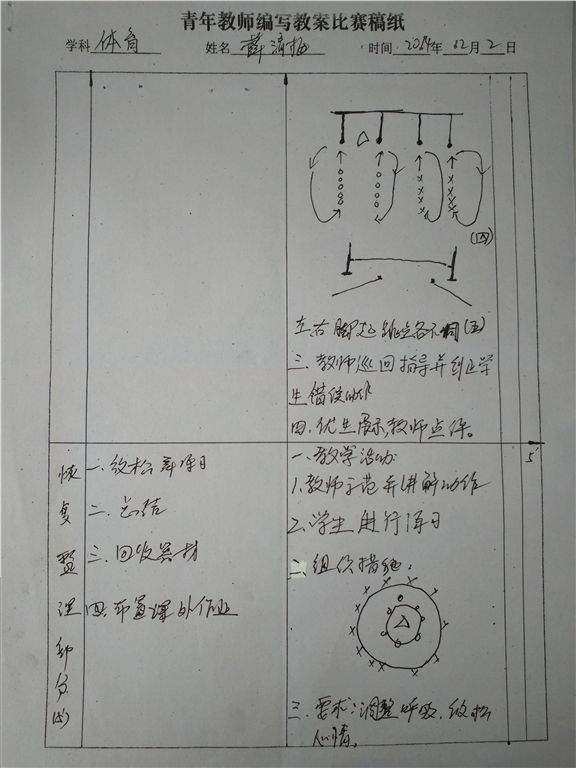 青年教师编写教案比赛稿纸
学科 体育 姓名 薛清梅 时间 2014年 12月 2日
(四)
左右脚起跳点各不同(五)
三、教师巡回指导并纠正学
生错误动作
四、优生展示,教师点评。
恢复整理部分(5)
一、放松
二、总结
三、回收器材
四、布置课外作业
一、教学活动
1.教师示范并讲解动作
2.学生进行练习
二、组织措施:
三、要求:调整呼吸、放松
心情。
5'